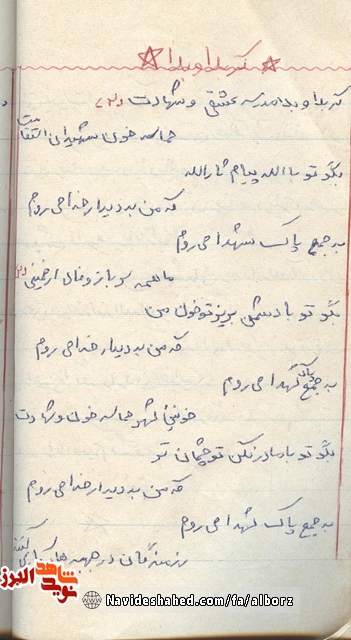 کربلا و بلا
کربلا و بلا مدرسه عشقی و شهادت (۲)
حماسه خون شهیدان
بگو تو با الله پیام ثارالله
که من به دیدار خدا می روم
به جمع پاک شهدا می روم
ما همه سرباز وفادار خمینی (۲)
بگو تو با دشمن بریز تو خون من
که من به دیدار خدا می روم
به جمع پاک شهدا می روم
خونین شهر حماسه خون و شهادت
بگو تو با مادر نکن تو چشمان تر
که من به دیدار خدا می روم
به جمع پاک شهدا می روم
رزمندگان در جبهه های
نوید شاهد البرز
Navideshahed.com/fa/alborz